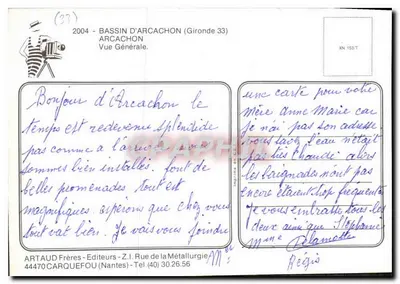 (33)
2004 - BASSIN D'ARCACHON (Gironde 33)
ARCACHON
Vue Générale.
Bonjour d'Arcachon le
temps est redevenu splendide
pas comme à l'arrivée
sommes bien installés. font de
belles promenades tout est
magnifiques. espérons que chez vous
tout vat bien. Je vais vous joindre
une carte pour votre
mère Anne Marie car
je n'ai pas son adresse
vous savez l'eau n'était
pas très chaude alors
les baignades n'ont pas
encore étaient trop fréquentes
Je vous embrasse tous les
deux ainsi que Stéphanie
Mme Delamotte
Régis
ARTAUD Frères - Editeurs - Z.I. Rue de la Métallurgie
44470 CARQUEFOU (Nantes) - Tél (40) 30.26.56